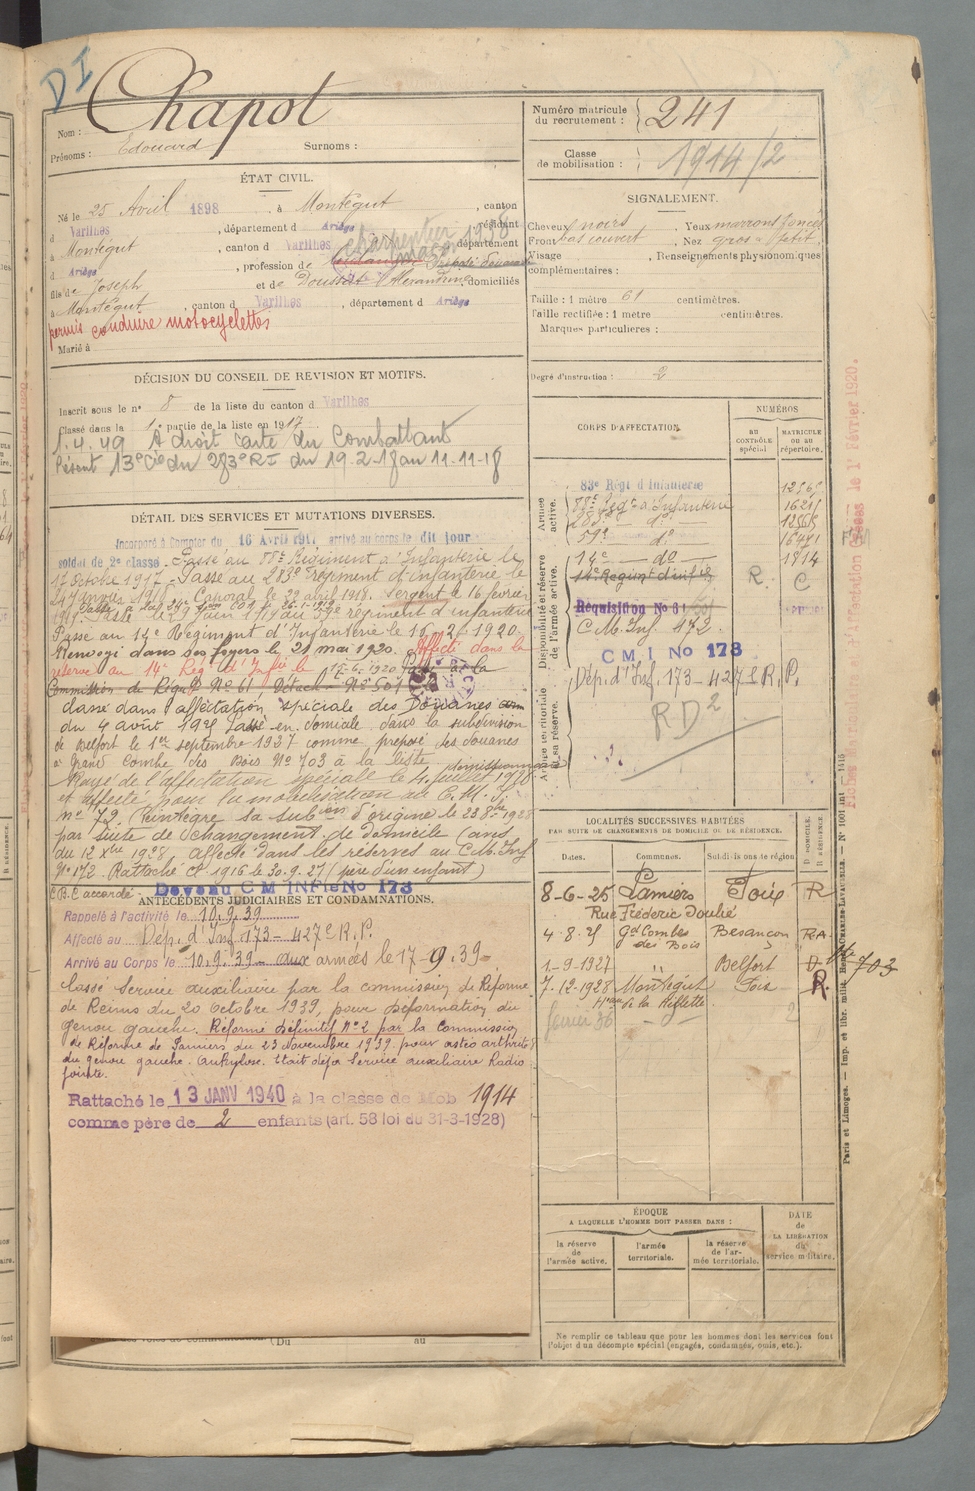 DI
Nom : Chapot
Prénoms : Edouard Surnoms :
Numéro matricule du recrutement : 241
Classe de mobilisation : 1914/2
ÉTAT CIVIL.
Né le 25 Avril 1898, à Montégut, canton
d Varilhes, département d Ariège, résidant
à Montégut, canton d Varilhes, département
d Ariège, profession de charpentier 1938
fils de Joseph et de Doussat Alexandrine, domiciliés
à Montégut, canton d Varilhes, département d Ariège
permis conduire motocyclettes
Marié à
SIGNALEMENT.
Cheveux noirs, Yeux marrons foncés
Front bas couvert, Nez gros petit,
Visage, Renseignements physionomiques
complémentaires :
Taille : 1 mètre 61 centimètres.
Taille rectifiée : 1 mètre centimètres.
Marques particulières :
Degré d'instruction : 2
DÉCISION DU CONSEIL DE REVISION ET MOTIFS.
Inscrit sous le n° 8 de la liste du canton d Varilhes
Classé dans la 1e partie de la liste en 1917
1.4.49 A droit carte du Combattant
Présent 13e Cie du 283e RI du 19.2.18 au 11.11.18
DÉTAIL DES SERVICES ET MUTATIONS DIVERSES.
Incorporé à compter du 16 Avril 1917 arrivé au corps le dit jour
soldat de 2e classe. Passé au 88e Régiment d'Infanterie le
17 octobre 1917. Passé au 283e régiment d'infanterie le
24 janvier 1918. Caporal le 29 avril 1918. Sergent le 16 février
1919. Passé le 29 juin 1919 au 59e régiment d'infanterie
Passé au 14e Régiment d'Infanterie le 16.2.1920.
Renvoyé dans ses foyers le 21 mai 1920. Affecté dans la
réserve au 14e Rég. d'Inf. le 15.6.1920 Passé à la
Commission de Régul. N° 61 Détach. N° 501
classé dans l'affectation spéciale des Douanes
du 4 août 1925 Passé en domicile dans la subdivision
de Belfort le 1er septembre 1927 comme préposé des douanes
à Grand Combe des Bois N° 703 à la liste démissionnaire
Rayé de l'affectation spéciale le 4 juillet 1928
et affecté pour la mobilisation au C.M.I.
n° 72. Réintègre sa subon d'origine le 23 8bre 1928
par suite de changement de domicile (avis
du 12 Xbre 1928, affecté dans les réserves au C.M. Inf.
N° 172. Rattaché cl. 1916 le 30.9.27 (père d'un enfant)
C.B.C accordé. Devenu C M INFie No 173
ANTÉCÉDENTS JUDICIAIRES ET CONDAMNATIONS.
Rappelé à l'activité le 10.9.39
Affecté au Dép. d'Inf. 173 - 427e R.P.
Arrivé au Corps le 10.9.39 - aux armées le 17-9.39
Classé Service auxiliaire par la commission de Réforme
de Reims du 20 octobre 1939, pour déformation du
genou gauche. Réformé définitif N° 2 par la Commission
de Réforme de Pamiers du 23 Novembre 1939 pour ostéo arthrite
du genou gauche. Ankylose. Etait déjà Service auxiliaire Radio
jointe.
Rattaché le 13 JANV 1940 à la classe de Mob 1914
comme père de 2 enfants (art. 58 loi du 31-3-1928)
(Du au
CORPS D'AFFECTATION.
NUMÉROS
AU CONTRÔLE spécial
MATRICULE OU AU répertoire.
Armée active.
83e Régt d'Infanterie
88e Régt d'Infanterie
283e - do -
59e - do -
Disponibilité et réserve de l'armée active.
14e - do - 1814
14e Régiment d'infie R. C
Réquisition No 61
C.M. Inf. 472.
C M I No 173
Dép. d'Inf. 173 - 427e R.P.
RD2
Armée territoriale et sa réserve.
Fiches affectation créées le 1er Février 1920.
LOCALITÉS SUCCESSIVES HABITÉES
PAR SUITE DE CHANGEMENTS DE DOMICILE OU DE RÉSIDENCE.
Dates. Communes. Subdivisions de région D DOMICILE. R RÉSIDENCE.
8-6-25 Pamiers Foix R
Rue Frédéric Soulié
4-8-25 Gd Combes des Bois Besançon RA
1-9-1927 " Belfort D 703
7-12-1928 Montégut Foix R.
février 36 2
ÉPOQUE
A LAQUELLE L'HOMME DOIT PASSER DANS :
la réserve de l'armée active.
l'armée territoriale.
la réserve de l'armée territoriale.
DATE de LA LIBÉRATION du service militaire.
Ne remplir ce tableau que pour les hommes dont les services font
l'objet d'un décompte spécial (engagés, condamnés, omis, etc.).
Paris et Limoges. — Imp. et libr. milit. Henri CHARLES-LAVAUZELLE. —